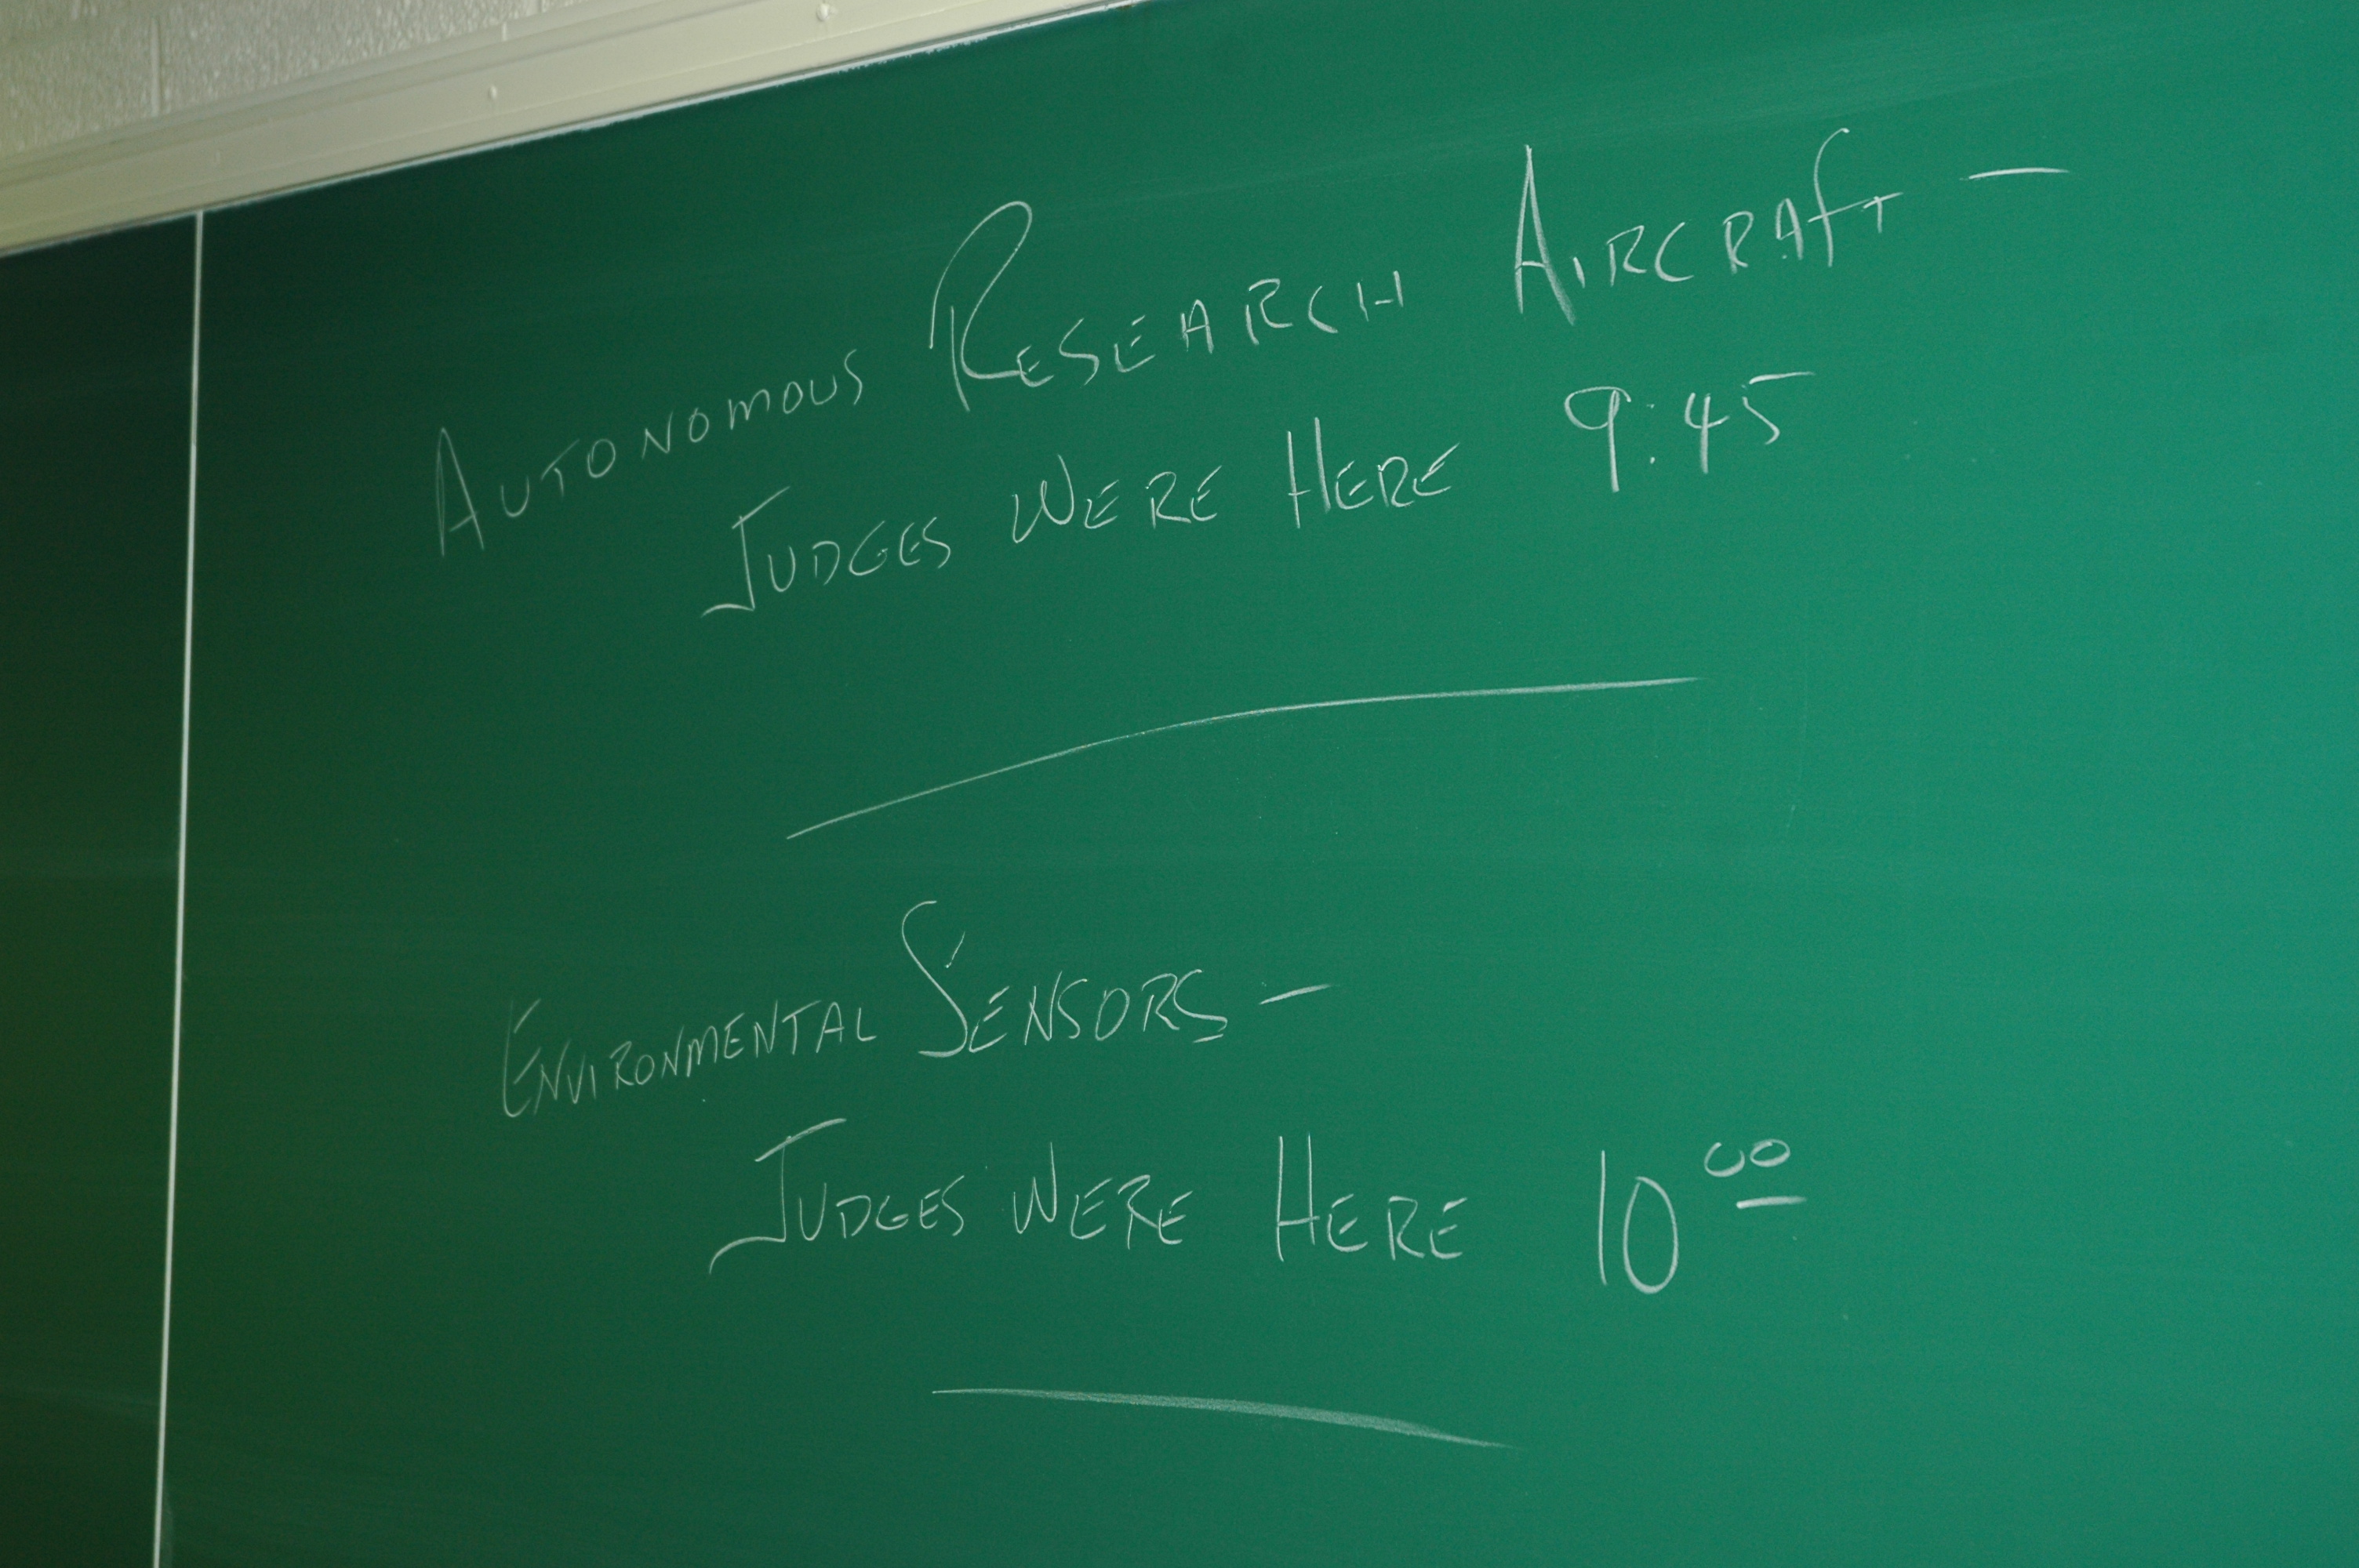 Autonomous Research Aircraft —
Judges Were Here 9:45
Environmental Sensors —
Judges Were Here 10 00